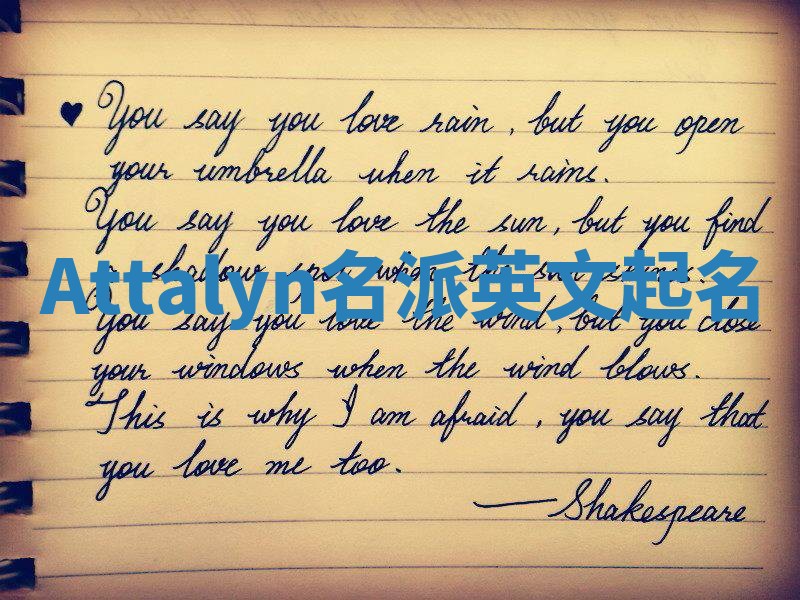 ♥ You say you love rain, but you open
your umbrella when it rains.
You say you love the sun, but you find
a shadow spot when the sun shines.
Attalyn名派英文起名
You say you love the wind, but you close
your windows when the wind blows.
This is why I am afraid, you say that
you love me too.
—Shakespeare